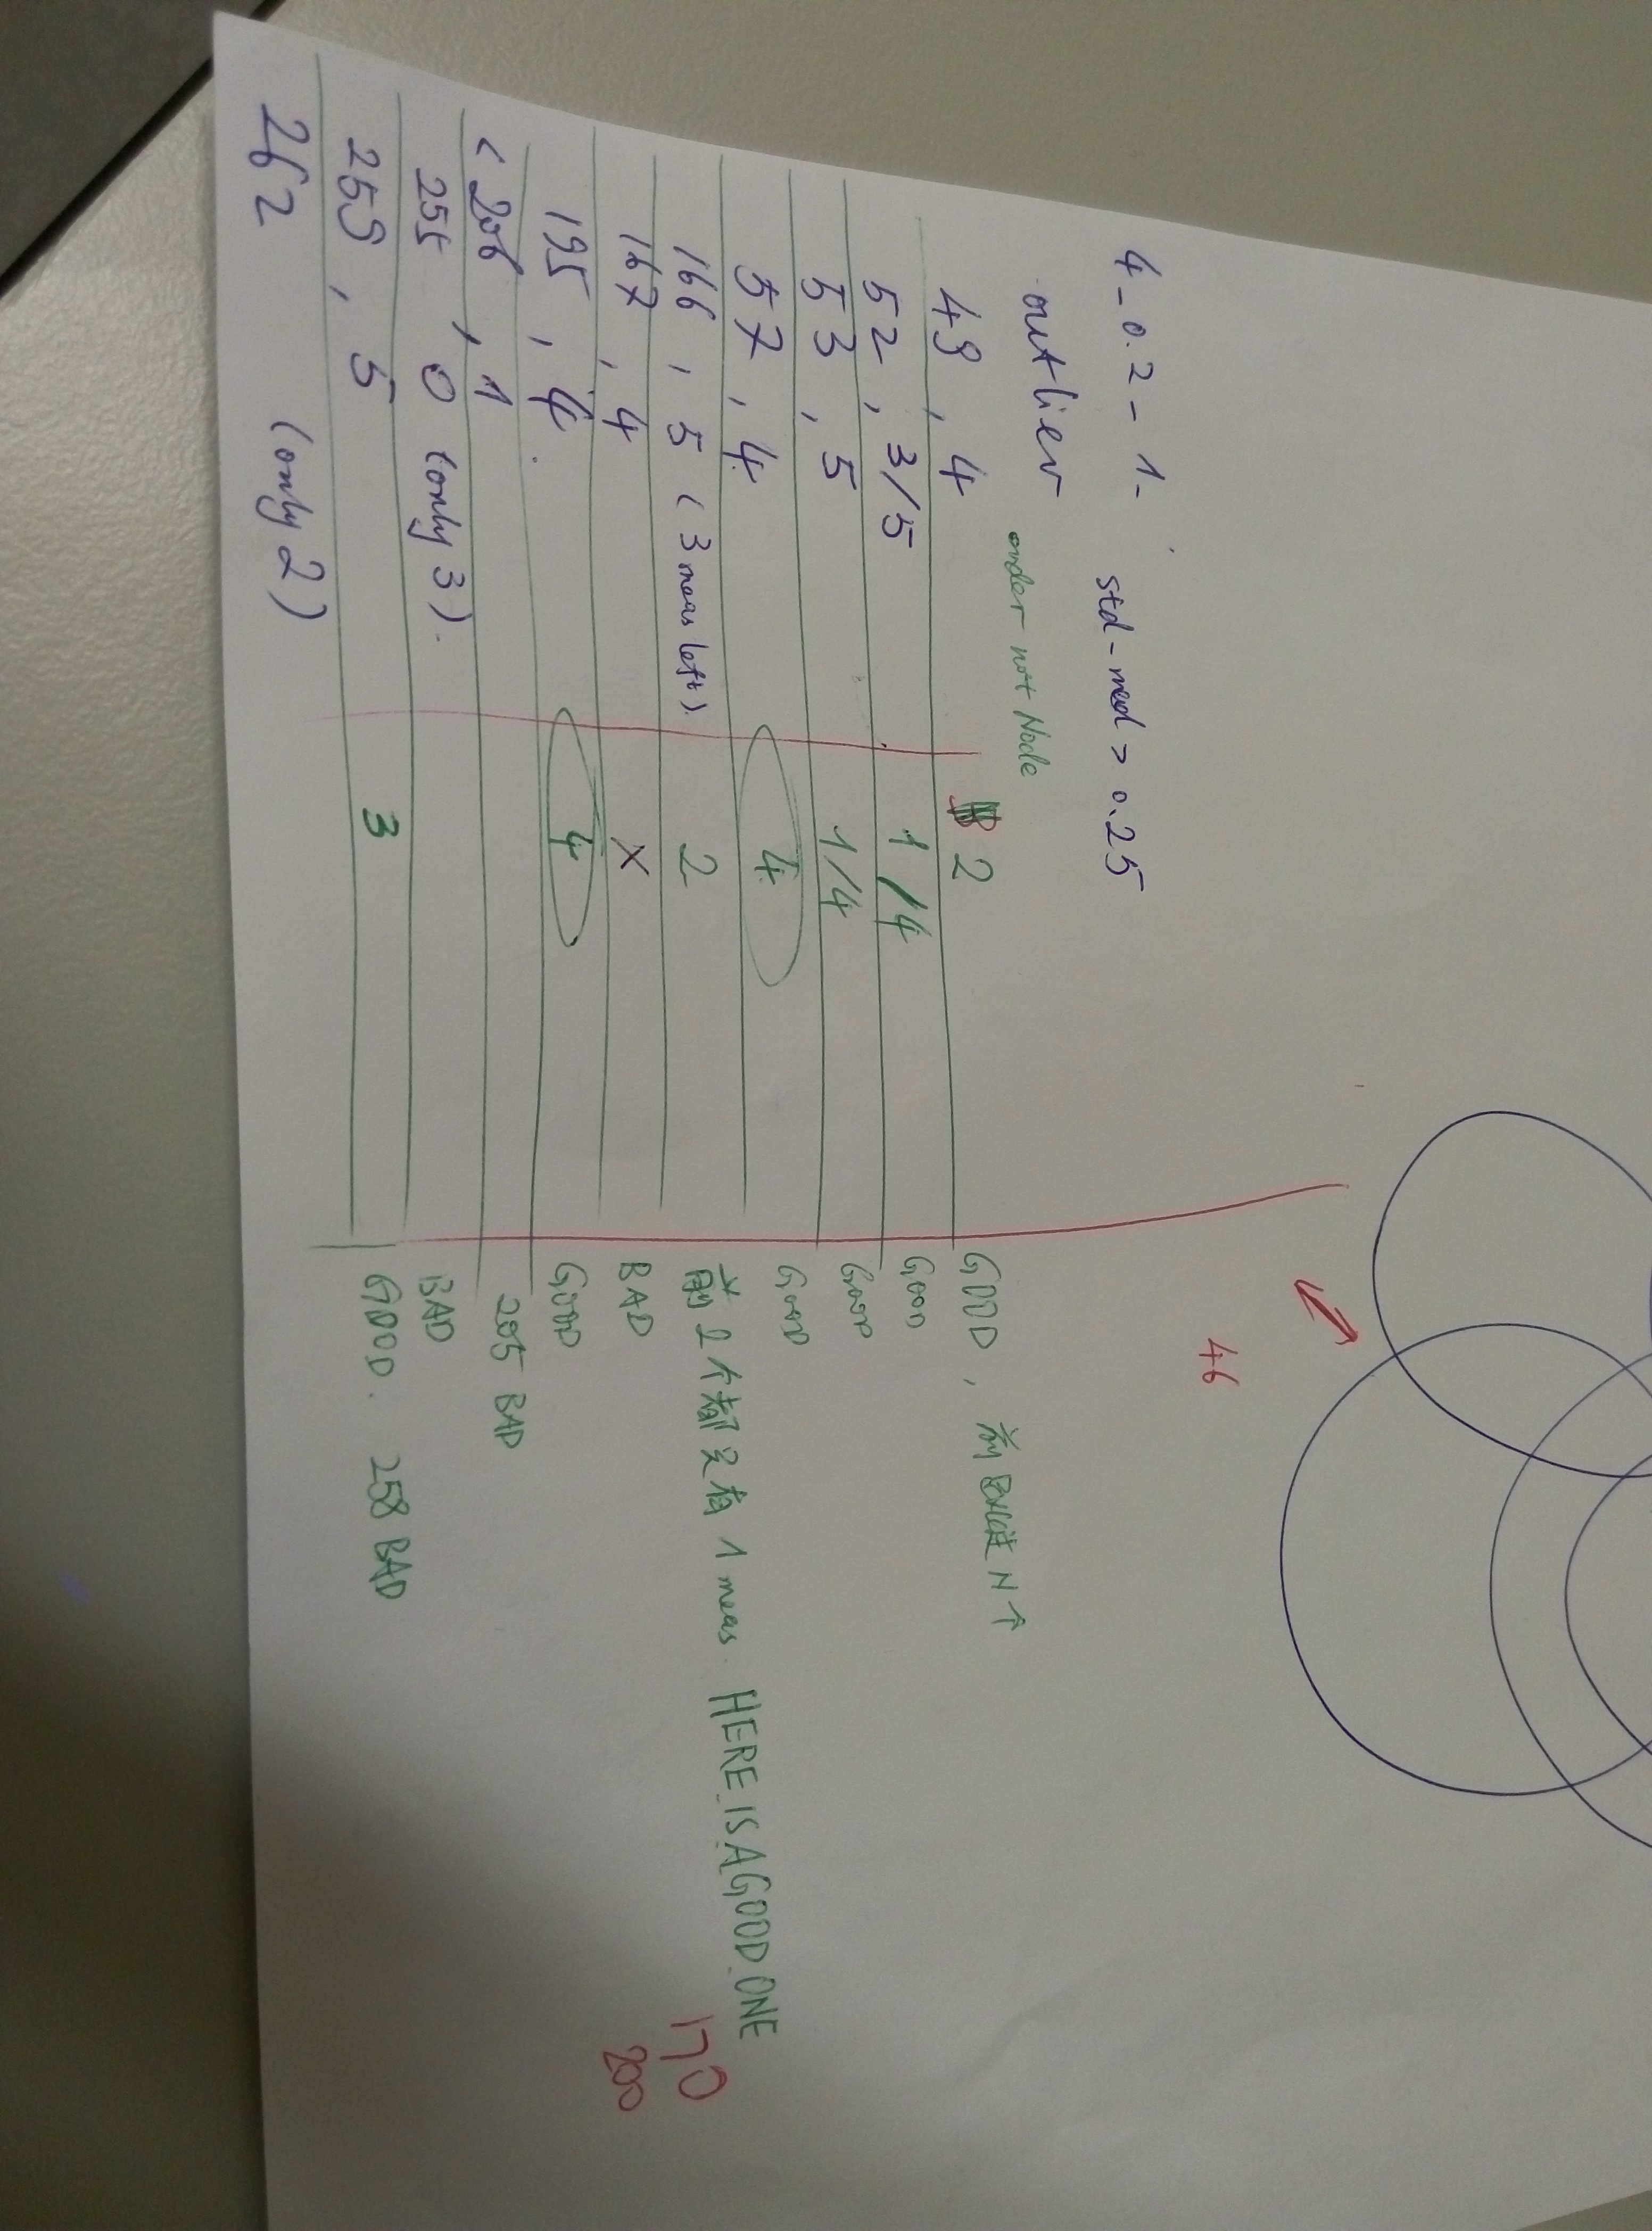 4-0.2-1- std-med > 0.25
outlier order not Node
46
49, 4 2 GOOD, N↑
52, 3/5 1/4 GOOD
53, 5 1/4 GOOD
57, 4 4 GOOD
166, 5 (3 meas left). 2 2个都只有 1 meas. HERE_IS_A_GOOD_ONE
170
167, 4 X BAD
200
195, 4. 4 GOOD
<206, 1 205 BAD
255 0 (only 3). BAD
259, 5 3 GOOD. 258 BAD
262 (only 2)